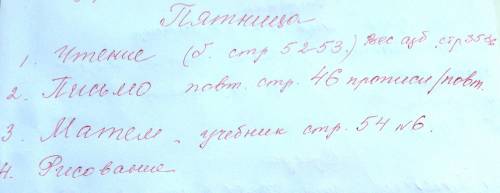 Пятница
1. Чтение (б. стр 52-53.) Вес азб. стр 35
2. Письмо повт. стр. 46 прописи/повт.
3. Матем. учебник стр. 54 №6.
4. Рисование